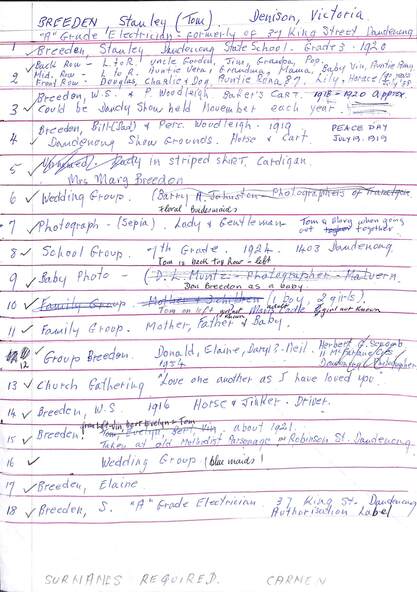 BREEDEN Stanley (Tom). Denison, Victoria
"A" Grade Electrician - formerly of 37 King Street Dandenong
1 ✓ Breeden, Stanley Dandenong State School. Grade 3 - 1920
Back Row - L to R uncle Gordon, Tom, Grandpa, Pop.
2 ✓ Mid. Row - L to R. Auntie Vera, Grandma, Mama, Baby Vin, Auntie
Front Row - Douglas, Charlie & Dog, Auntie Rena 87. Lily, Horace
3 ✓ Breeden, W.S. & P. Woodleigh Baker's Cart. 1918 - 1920 approx
Could be Dandy Show held November each year
4 ✓ Breeden, Bill (Dad) & Perc. Woodleigh. 1919 PEACE DAY
Dandenong Show Grounds. Horse & Cart JULY 19. 1919
5 ✓ Lady in striped skirt, Cardigan.
Mrs Marg Breedon
6 ✓ Wedding Group. (Barry A. Johnston - Photographers of Traralgon
floral bridesmaids
7 ✓ Photograph - (Sepia). Lady & Gentleman Tom & Marg when going
out together
8 ✓ School Group. 7th Grade. 1924. 1403 Dandenong
Tom is back top row - left
9 ✓ Baby Photo - (D. L. Muntz - Photographer - Malvern.
Don Breedon as a baby.
10 ✓ Family Group Mother & 3 children (1 Boy, 2 girls).
Tom on left girl not known
11 ✓ Family Group. Mother, Father & Baby.
12 ✓ Group Breedon. Donald, Elaine, Daryl & Neil. Herbert G.
1954 Dandenong Photographer
13 ✓ Church Gathering "Love one another as I have loved you."
14 ✓ Breeden, W.S. 1916 Horse & Jinker. Driver.
front left Vin, Evelyn & Tom
15 ✓ Breeden. Tom, Evelyn, Bert, Vin. about 1921.
Taken at old Methodist Parsonage in Robinson St. Dandenong
16 ✓ Wedding Group (blue maids)
17 ✓ Breeden, Elaine
18 ✓ Breeden, S. "A" Grade Electrician. 37 King St. Dandenong
Authorisation Label
SURNAMES REQUIRED. CARMEN